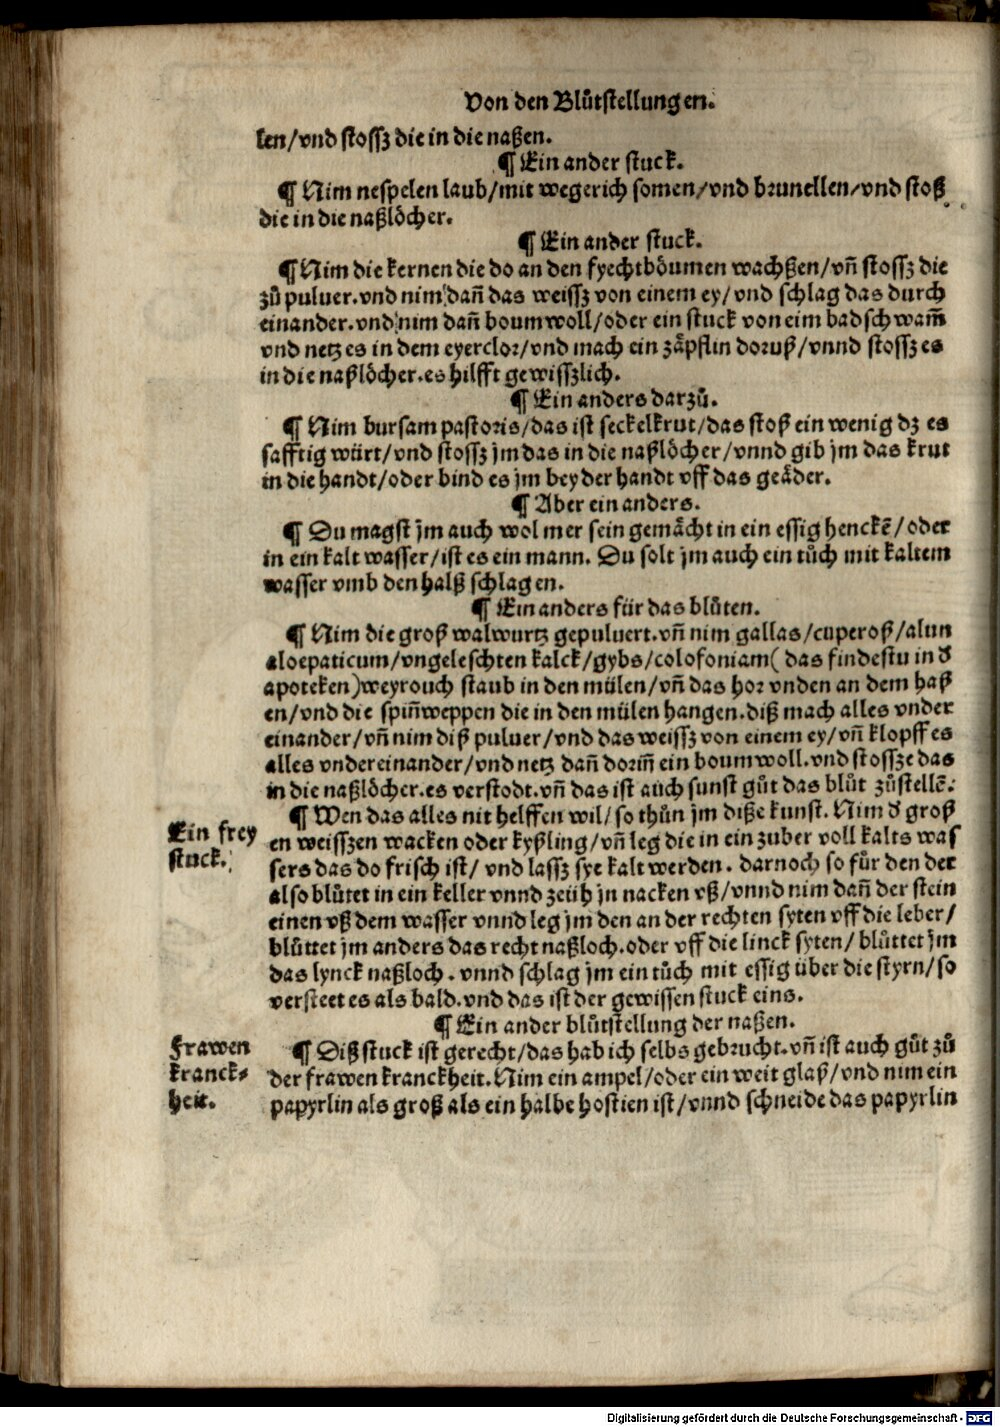 Von den Blůtstellungen.
len/vnd stossz die in die naßen.
¶ Ein ander stuck.
¶ Nim nespelen laub/mit wegerich somen/vnd brunellen/vnd stoß
die in die naßlöcher.
¶ Ein ander stuck.
¶ Nim die kernen die do an den fyechtböumen wachßen/vñ stossz die
zů puluer.vnd nim dañ das weissz von einem ey/vnd schlag das durch
einander.vnd nim dañ boumwoll/oder ein stuck von eim badschwam̃
vnd netz es in dem eyerclor/vnd mach ein zäpflin doruß/vnnd stossz es
in die naßlöcher.es hilfft gewisszlich.
¶ Ein anders darzů.
¶ Nim bursam pastoris/das ist seckelkrut/das stoß ein wenig dz es
safftig würt/vnd stossz jm das in die naßlöcher/vnnd gib jm das krut
in die handt/oder bind es jm bey der handt vff das geäder.
¶ Aber ein anders.
¶ Du magst jm auch wol mer sein gemächt in ein essig henckē/oder
in ein kalt wasser/ist es ein mann. Du solt jm auch ein tůch mit kaltem
wasser vmb den halß schlagen.
¶ Ein anders für das blůten.
¶ Nim die groß walwurtz gepuluert.vñ nim gallas/cuperoß/alun
aloepaticum/vngeleschten kalck/gybs/colofoniam( das findestu in d̕
apoteken)weyrouch staub in den mülen/vñ das hor vnden an dem haß
en/vnd die spiñweppen die in den mülen hangen.diß mach alles vnder
einander/vñ nim diß puluer/vnd das weissz von einem ey/vñ klopff es
alles vndereinander/vnd netz dañ doriñ ein boumwoll.vnd stossze das
in die naßlöcher.es verstodt.vñ das ist auch sunst gůt das blůt zůstellē.
¶ Wen das alles nit helffen wil/so thůn jm diße kunst. Nim d̕ groß
Ein frey
stuck.
en weisszen wacken oder kyßling/vñ leg die in ein zuber voll kalts was
sers das do frisch ist/ vnd lassz sye kalt werden. darnoch so für den der
also blůtet in ein keller vnnd zeüh jn nacken vß/vnnd nim dañ der stein
einen vß dem wasser vnnd leg jm den an der rechten syten vff die leber/
blůttet jm anders das recht naßloch.oder vff die linck syten/ blůttet jm
das lynck naßloch. vnnd schlag jm ein tůch mit essig über die styrn/so
versteet es als bald.vnd das ist der gewissen stuck eins.
¶ Ein ander blůtstellung der naßen.
Frawen
kranck-
heit.
¶ Diß stuck ist gerecht/das hab ich selbs gebrucht.vñ ist auch gůt zů
der frawen kranckheit. Nim ein ampel/oder ein weit glaß/vnd nim ein
papyrlin als groß als ein halbe hostien ist/vnnd schneide das papyrlin
Digitalisierung gefördert durch die Deutsche Forschungsgemeinschaft - DFG